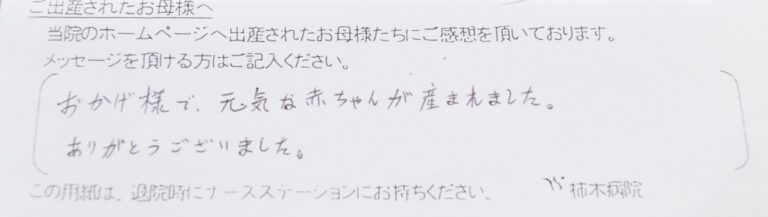 ご出産されたお母様へ
当院のホームページへ出産されたお母様たちにご感想を頂いております。
メッセージを頂ける方はご記入ください。
おかげ様で、元気な赤ちゃんが産まれました。
ありがとうございました。
この用紙は、退院時にナースステーションにお持ちください。 柿木病院